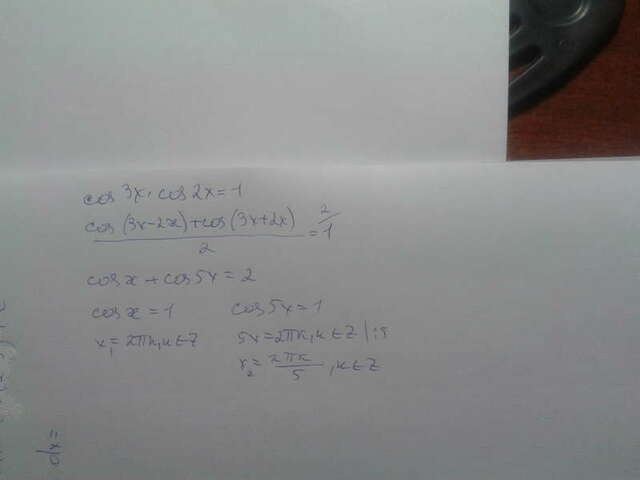 cos 3x · cos 2x = 1
cos (3x-2x) + cos (3x+2x) / 2 = 1 2/
cos x + cos 5x = 2
cos x = 1 cos 5x = 1
x₁ = 2πk, k ∈ Z 5x = 2πk, k ∈ Z | :5
x₂ = 2πk / 5 , k ∈ Z